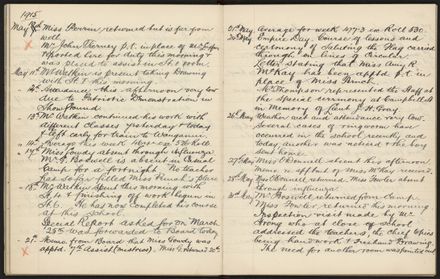 1915
May 10th Miss Power returned but is far from
well.
Mr John Tierney p.t. in place of
reported here for duty this morning &
was placed to assist in St. room
May 11th Mr Watkin was present taking Drawing
with St. 5 this morning.
Attendance this afternoon very low
due to Patriotic Demonstration in
Show Ground
13th Mr Watkin continued his work with
different classes yesterday & today
& left early for train to Wanganui.
14th Average for week
17th Miss Gundy absent through influenza.
Mr Boswell is absent in Camp
for a fortnight. No teacher
has so far filled Miss place
18th Mr Watkin spent this morning with
St. 6 & finishing off work begun in
St. 6. He has now completed his course
at this school.
Second Report asked for on March
25th was forwarded to Board today
21st Memo from Board that Miss Gundy was
apptd. 7th Assist (mistress).
21st May Average for week 477.3 on Roll 530.
24th May Empire Day. Course of lessons and
ceremony of Saluting the Flag carried
through on lines of Circular.
Letter stating that Miss Amy R.
McKay has been apptd p.t. in
place of Miss
Mr Thompson represented the Staff at
the Special ceremony at Campbelltown
in memory of Cont. J. H. Gray
26th May Weather wet and attendance very low.
Several cases of ringworm have
occurred in the school recently and
today another was noticed & the boy
sent home.
27th May Miss O'Donnell absent this afternoon
Memo re apptmt of Miss McKay received.
28th May Miss O'Donnell returned. Miss Fowler absent
through influenza.
31st May Mr Boswell returned from Camp
Miss Fowler returned this morning
Inspection visit made by Mr
Strong who at close of school
addressed the teachers, the Chief topics
being handwork & Freehand Drawing.
The need for another room was pointed out